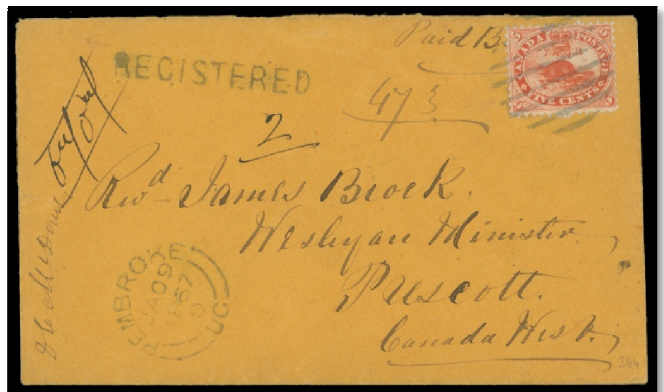 Paid
REGISTERED
CANADA POSTAGE
FIVE CENTS
5 5
47
2
Revd James Brock.
Wesleyan Minister
Prescott.
Canada West.
PEMBROKE
JA 09
1867
UC
244